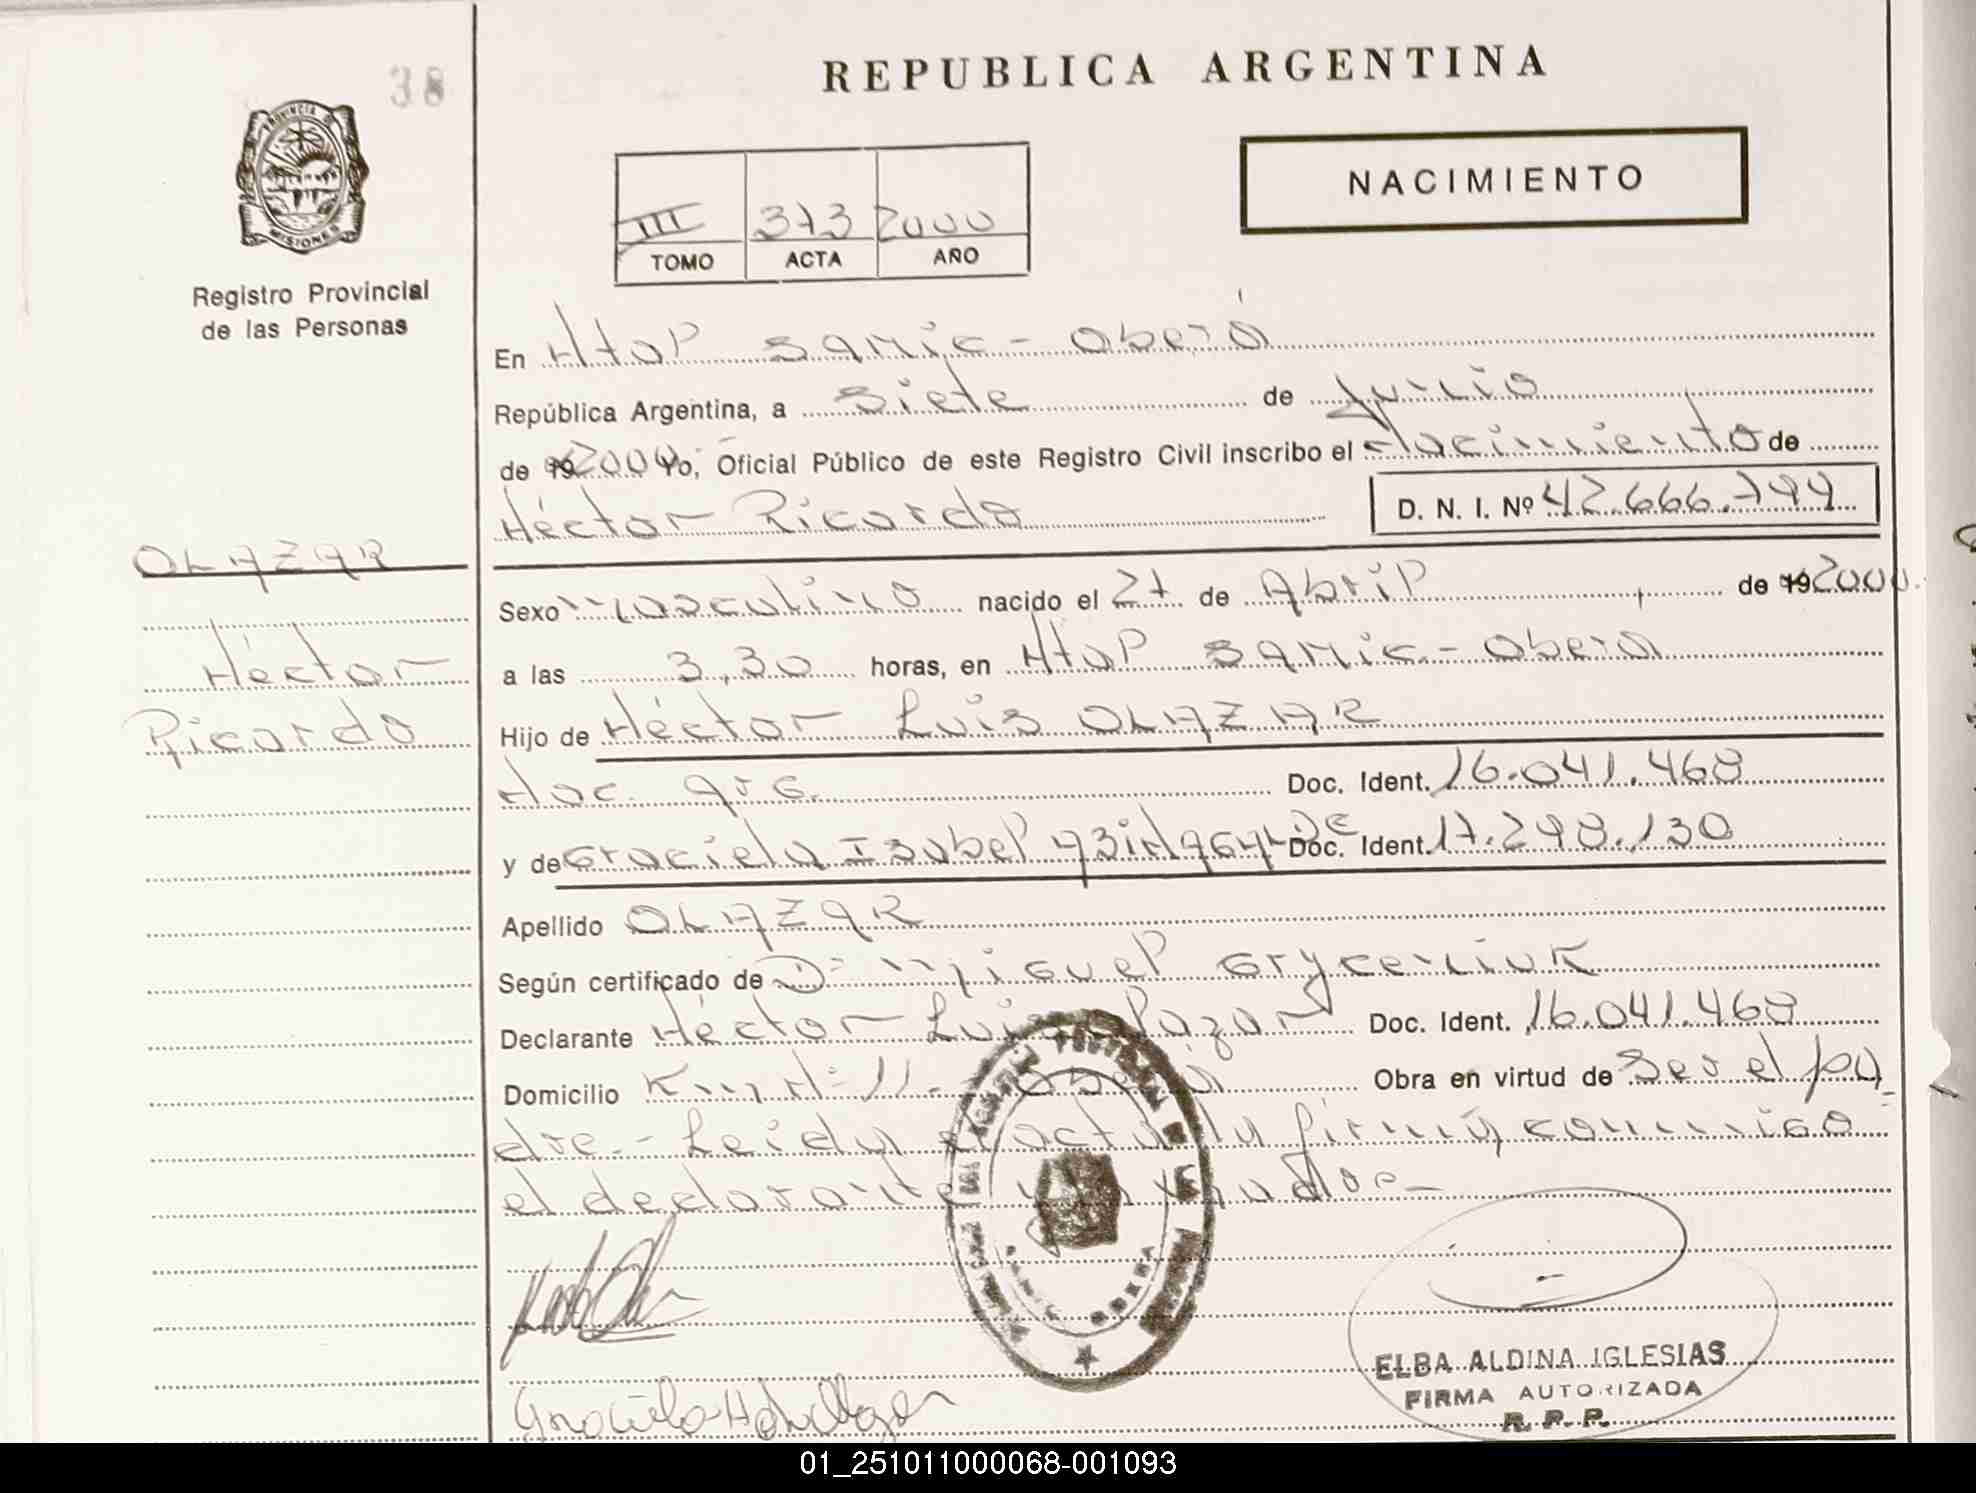 38
REPUBLICA ARGENTINA
NACIMIENTO
PROVINCIA DE
MISIONES
Registro Provincial
de las Personas
III 373 2000
TOMO ACTA AÑO
En Htal SAMIC - Oberá
República Argentina, a Siete de Junio
de 192000 Yo, Oficial Público de este Registro Civil inscribo el Nacimiento de
Héctor Ricardo D. N. I. Nº 42.666.799
OLAZAR
Héctor
Ricardo
Sexo masculino nacido el 27 de Abril de 192000
a las 3,30 horas, en Htal SAMIC - Oberá
Hijo de Héctor Luis OLAZAR
Nac. arg. Doc. Ident. 16.041.468
y de Graciela Isabel de Doc. Ident. 17.298.130
Apellido OLAZAR
Según certificado de Dr. Miguel Gryceniuk
Declarante Héctor Luis Olazar Doc. Ident. 16.041.468
Domicilio Km Nº 11 - Oberá Obra en virtud de Ser el pa
dre - Leída el acta la firmá conmigo
el declarante y la madre -
ELBA ALDINA IGLESIAS
FIRMA AUTORIZADA
R. P. P.
01_251011000068-001093